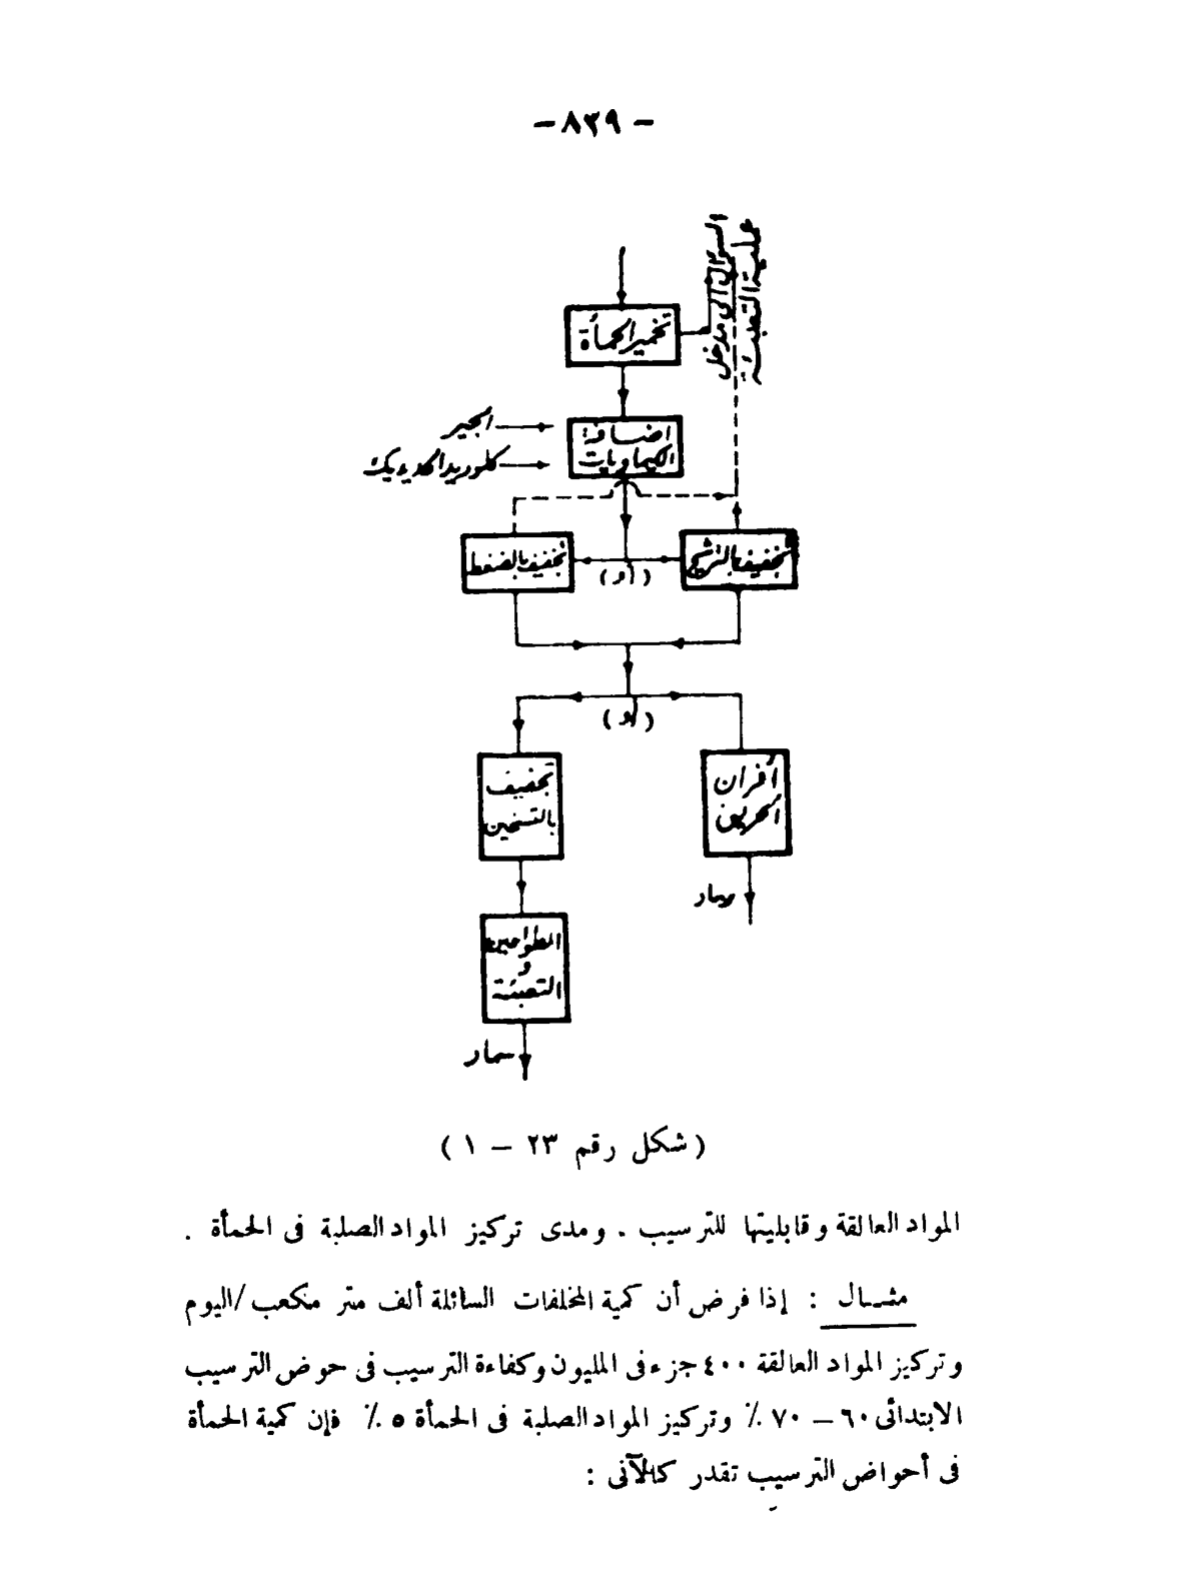 -٨٣٩-
السوائل إلى مدخل
عملية التنقية
تخمير الحمأة
الجير
إضافة
الكيماويات
كلوريد الحديديك
تجفيف بالضغط
(أو)
تجفيف بالترشيح
(أو)
تجفيف
بالتسخين
أفران
الحريق
سماد
المطواحين
و
التعبئة
سماد
( شكل رقم ٢٣ – ١ )
المواد العالقة وقابليتها للترسيب . ومدى تركيز المواد الصلبة فى الحمأة .
مثـال : إذا فرض أن كمية المخلفات السائلة ألف متر مكعب/اليوم
وتركيز المواد العالقة ٤٠٠ جزء فى المليون وكفاءة الترسيب فى حوض الترسيب
الابتدائى ٦٠ – ٧٠ ٪ وتركيز المواد الصلبة فى الحمأة ٥ ٪ فإن كمية الحمأة
فى أحواض الترسيب تقدر كالآتى :